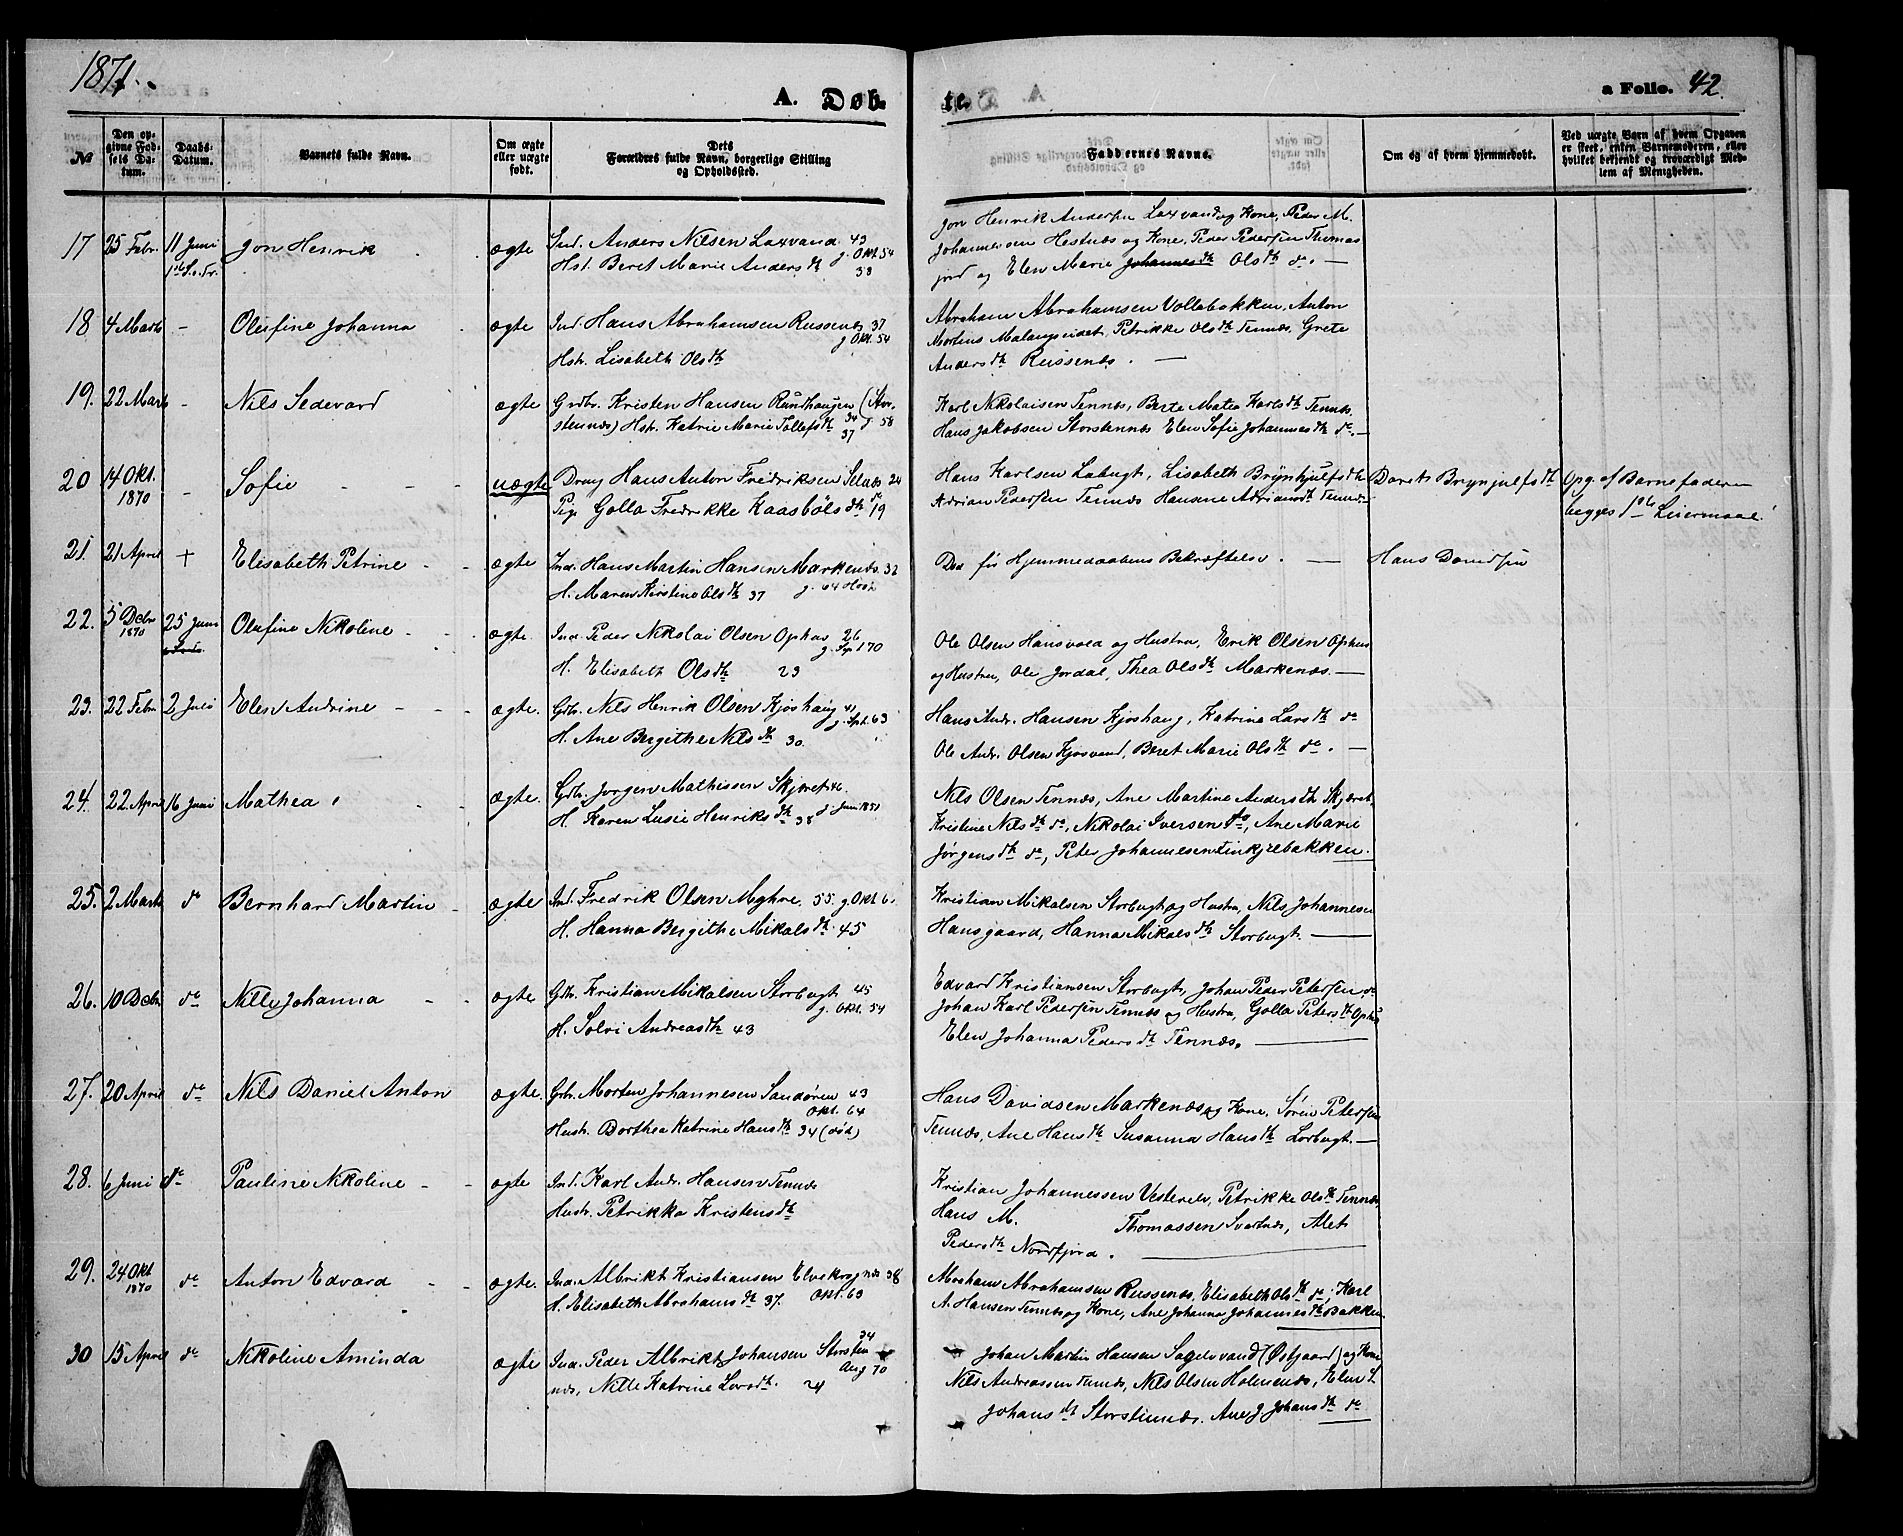 1871.
A. Døb-
te.
a Folio. 42.
№
Den op-
givne Fød-
sels Da-
tum.
Daabs-
Datum.
Barnets fulde Navn.
Om ægte
eller uægte
født.
Dets
Forældres fulde Navn, borgerlige Stilling
og Opholdssted.
Faddernes Navne.
Om og af hvem hjemmedøbt.
Ved uægte Barn af hvem Opgaven
er skeet, enten Barnemoderen, eller
hvilket bekjendt og troværdigt Med-
lem af Menigheden.
17 25 Febr. 11 Juni Jon Henrik ægte Ind. Anders Nilsen Laxvand 43
1ste S. e. Tr. g. Okt. 54
Hst. Beret Marie Anders dtr 33
Jon Henrik Andersen Laxvand og Kone, Peder M.
Johannessen Hestnæs og Kone, Peder Pedersen Thomas
jord og Elen Marie Johannesdtr Olsdtr do. —
18 4 Marts - Olufine Johanna ægte Ind. Hans Abrahamsen Russenæs 37
g. Okt. 54
Hstr. Lisabeth Olsdtr
Abraham Abrahamsen Vollabakken, Anton
Mortens Malangseidet, Petrikke Olsdtr Tennæs, Grete
Andersdtr Russenæs. —
19. 22 Marts - Nils Sedevard ægte Grdbr. Kristen Hansen Rundhaugen (Stor-
stennæs) Hstr. Katrie Marie Tollefsdtr 34 g. 58
37
Karl Nikolaisen Tennæs, Berte Matea Karlsdtr Tennæs,
Hans Jakobsen Storstennæs Elen Sofie Johannesdtr do. —
20 14 Okt. - Sofie uægte Dreng Hans Anton Fredriksen Selnæs 24
1870
Pige Golla Fredrikke Kaasbølsdtr do 19
Hans Karlsen Labugt, Lisabeth Brynhjulfsdtr
Adrian Pedersen Tennæs Hansine Adriansdtr Tennæs
Doret Brynjulfsdtr
Opg. af Barnefaderen
begges 1ste Leiermaal!
21. 21 April + Elisabeth Petrine ægte Ind. Hans Martin Hansen Markenæs 32
H. Maren Kirstine Olsdtr 37 g. 64
Død før Hjemmedaabens Bekræftelse. —
Hans Davidsen
22. 5 Debr 25 Juni Olufine Nikoline ægte. Ind. Peder Nikolai Olsen Ophus 26
1870 g. Sp. 170
H. Elisabeth Olsdtr 23
Ole Olsen Hansvold og Hustru, Erik Olsen Ophus
og Hustru, Ole Jordal, Thea Olsdtr Markenæs. —
23. 22 Febr 2 Juli Elen Andrine ægte. Gdbr. Nils Henrik Olsen Kjoshaug 41
g. Spt. 63
H. Ane Bergithe Nilsdtr 30.
Hans Andr. Hansen Kjoshaug, Katrina Larsdtr do
Ole Andr. Olsen Kjosvand, Beret Marie Olsdtr do. —
24. 22 April 16 Juni Mathea ægte. Gdbr. Jørgen Mathissen Skjæret 46.
H. Karen Lusie Henriksdtr 38 d. Juni 1851
Nils Olsen Tennæs, Ane Martine Andersdtr Skjæret
Kristine Nilsdtr do, Nikolai Iversen do, Ane Marie
Jørgensdtr do, Peter Johannesen Tinkjelbakken.
25. 2 Marts do Bernhard Martin ægte Ind. Fredrik Olsen Myhre. 55. g. Okt 6
H. Hanna Bergithe Mikalsdtr 45
Kristian Mikalsen Storbugt og Hustru, Nils Johannesen
Hansgaard, Hanna Mikalsdtr Storbugt. —
26. 10 Debr do Nille Johanna ægte Gdbr. Kristian Mikalsen Storbugt 45
g. Okt. 54
H. Solvi Andreasdtr 43
Edvard Kristiansen Storbugt, Johan Peder Petersen do
Johan Karl Pedersen Tennæs og Hustru, Golla Petersdtr Ophus
Elen Johanna Pedersdtr Tennæs. —
27. 20 April do Nils Daniel Anton ægte. Gdbr. Morten Johannesen Sandøren 43
Okt. 64
Hustr. Dorthea Katrine Hansdtr 34 (død)
Hans Davidsen Markenæs og Kone, Søren Petersen
Tennæs, Ane Hansdtr Susanna Hansdtr Lorbugt. —
28. 6 Juni do Pauline Nikoline ægte Ind. Karl Andr. Hansen Tennæs
Hustr. Petrikka Kristensdtr
Kristian Johannessen Vesterelv, Petrikke Olsdtr Tennæs,
Hans M. Thomassen Svartnæs, Alet
Pedersdtr Nordfjord. —
29. 24 Okt do Anton Edvard ægte. Ind. Albrikt Kristiansen Elvekrognæs 38
1870
H. Elisabeth Abrahamsdtr 37. Okt. 63
Abraham Abrahamsen Russenæs, Elisabeth Olsdtr do, Karl
A. Hansen Tennæs og Kone, Ane Johanna Johannesdtr Bakken.
30 15 April do Nikoline Aminda ægte Ind. Peder Albrikt Johansen Storsten- 34
næs, Nille Katrine Larsdtr. 24 Aug 70
Johan Martin Hansen Sagelvvand (Østgaard) og Kone
Nils Andreassen Tennæs, Nils Olsen Holmenæs, Elen S.
Johansdtr Storstennæs. Ane J. Johansdtr do